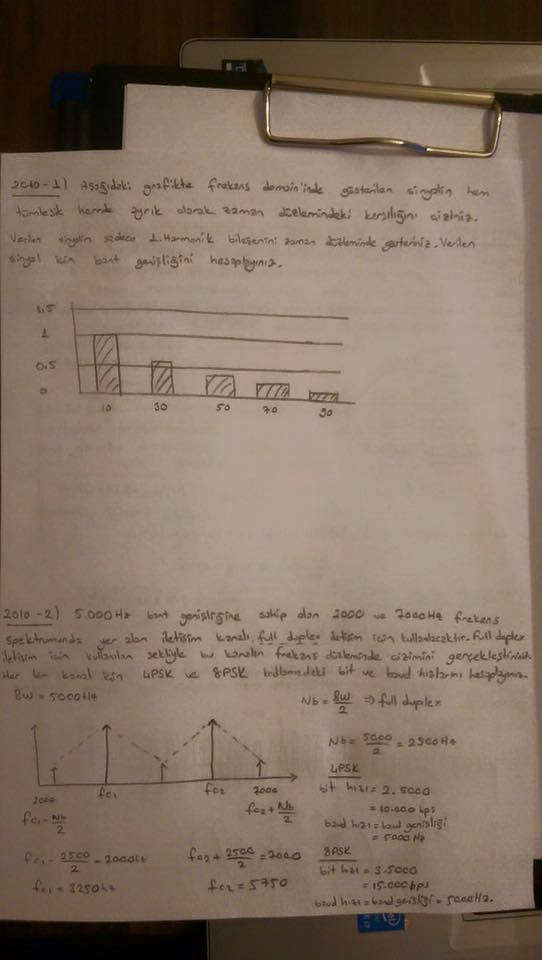 2010-1) Aşağıdaki grafikte frekans domain'inde gösterilen sinyalin hem
tümleşik hemde ayrık olarak zaman düzlemindeki karşılığını çiziniz.
Verilen sinyalin sadece 1. Harmonik bileşenini zaman düzleminde gösteriniz. Verilen
sinyal için bant genişliğini hesaplayınız.
1.5
1
0.5
0
10 30 50 70 90
2010-2) 5.000 Hz bant genişliğine sahip olan 2000 ve 7000 Hz frekans
spektrumunda yer alan iletişim kanalı, full duplex iletişim için kullanılacaktır. Full duplex
iletişim için kullanılan şekliyle bu kanalın frekans düzleminde çizimini gerçekleştiriniz.
Her bir kanal için 4PSK ve 8PSK kodlamadaki bit ve baud hızlarını hesaplayınız.
BW = 5000Hz
Nb = BW/2 => full duplex
Nb = 5000/2 = 2500 Hz
2000 fc1 fc2 7000
fc1 - Nb/2 fc2 + Nb/2
fc1 - 2500/2 = 2000Hz fc2 + 2500/2 = 7000
fc1 = 3250Hz fc2 = 5750
4PSK
bit hızı = 2.5000
= 10.000 bps
baud hızı = band genişliği
= 5000 Hz
8PSK
bit hızı = 3.5000
= 15.000 bps
baud hızı = band genişliği = 5000Hz.